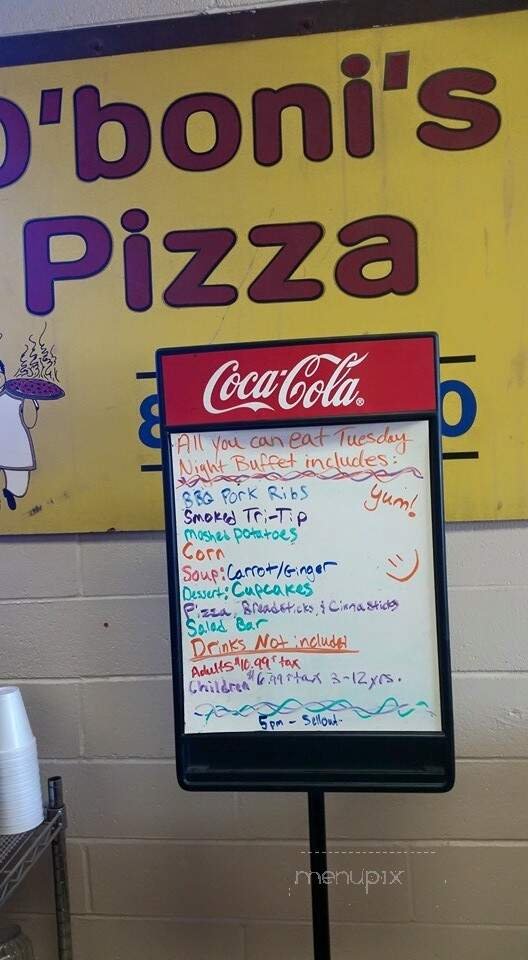 O'boni's
Pizza
8
0
Coca-Cola
All you can eat Tuesday
Night Buffet includes:
BBQ Pork Ribs
Yum!
Smoked Tri-Tip
mashed potatoes
Corn
Soup: Carrot/Ginger
Dessert: Cupcakes
Pizza, Breadsticks, & Cinnasticks
Salad Bar
Drinks Not included
Adults $10.99 + tax
Children $6.99 + tax 3-12 yrs.
5pm - Sellout-
menupix